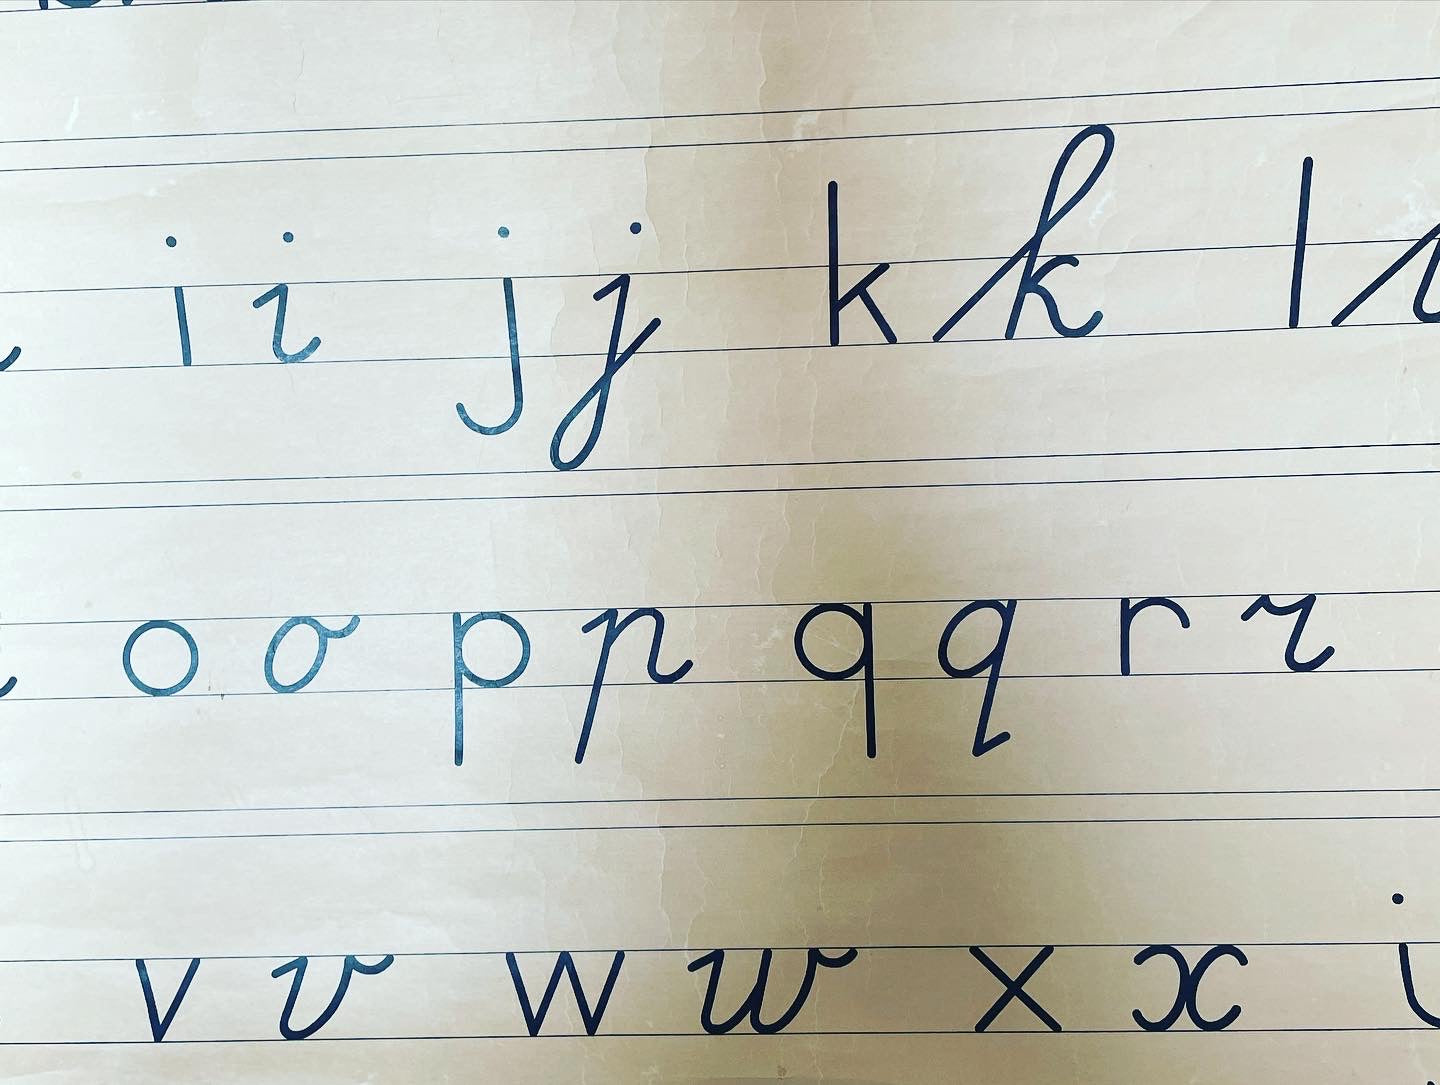 i i j j k k l l
o o p p q q r r
v v w w x x